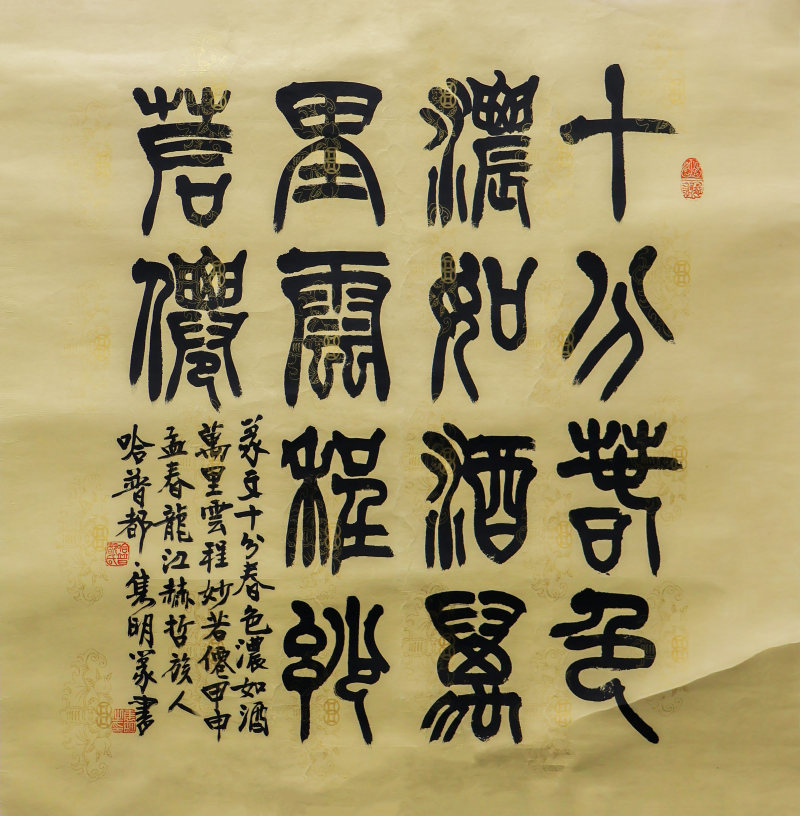 十分春色
濃如酒萬
里雲程妙
若僊
篆文十分春色濃如酒
萬里雲程妙若僊甲申
孟春龍江赫哲族人
哈普都·隽明篆書